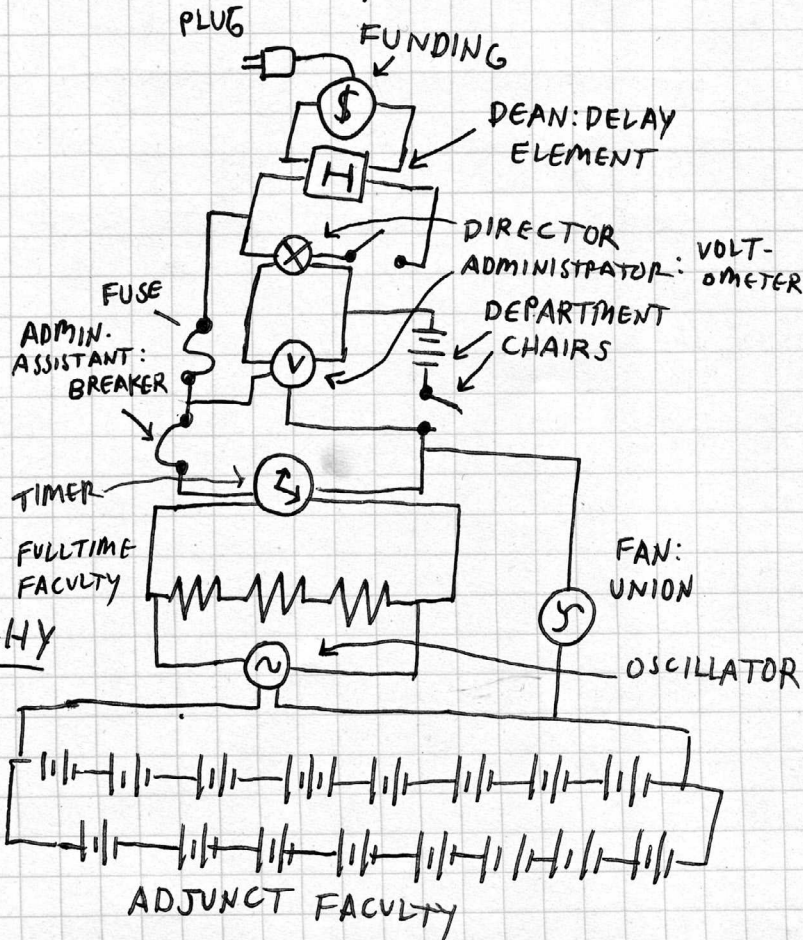 PLUG
FUNDING
$
DEAN: DELAY
ELEMENT
H
DIRECTOR
ADMINISTRATOR: VOLT-
OMETER
DEPARTMENT
CHAIRS
FUSE
ADMIN.
ASSISTANT:
BREAKER
V
TIMER
FULLTIME
FACULTY
FAN:
UNION
HY
OSCILLATOR
ADJUNCT FACULTY